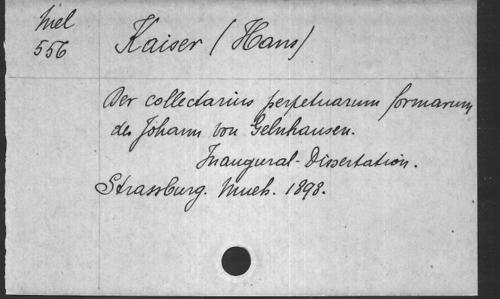 Niel
556
Kaiser (Hans)
Der collectarius perpetuarum formarum
des Johann von Gelnhausen.
Inaugural-Dissertation.
Strassburg. Mueh. 1898.